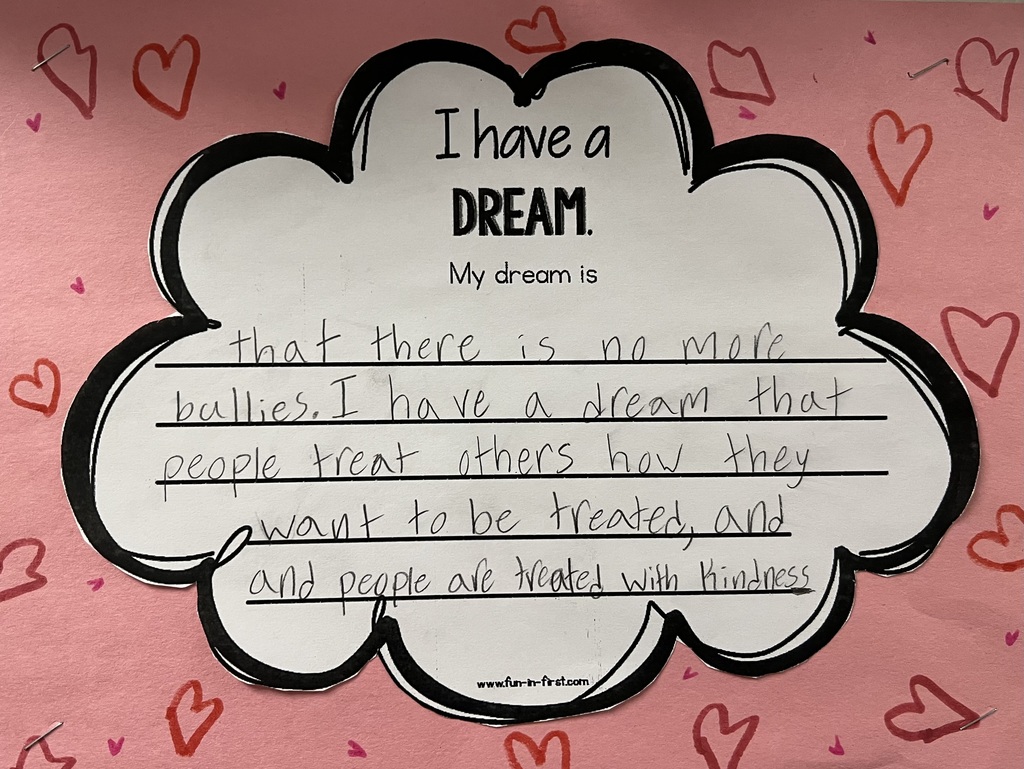 I have a
DREAM.
My dream is
that there is no more
bullies. I have a dream that
people treat others how they
want to be treated, and
and people are treated with kindness
www.fun-in-first.com